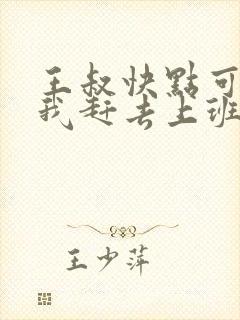 王叔快點可
我赶去上班
王少萍